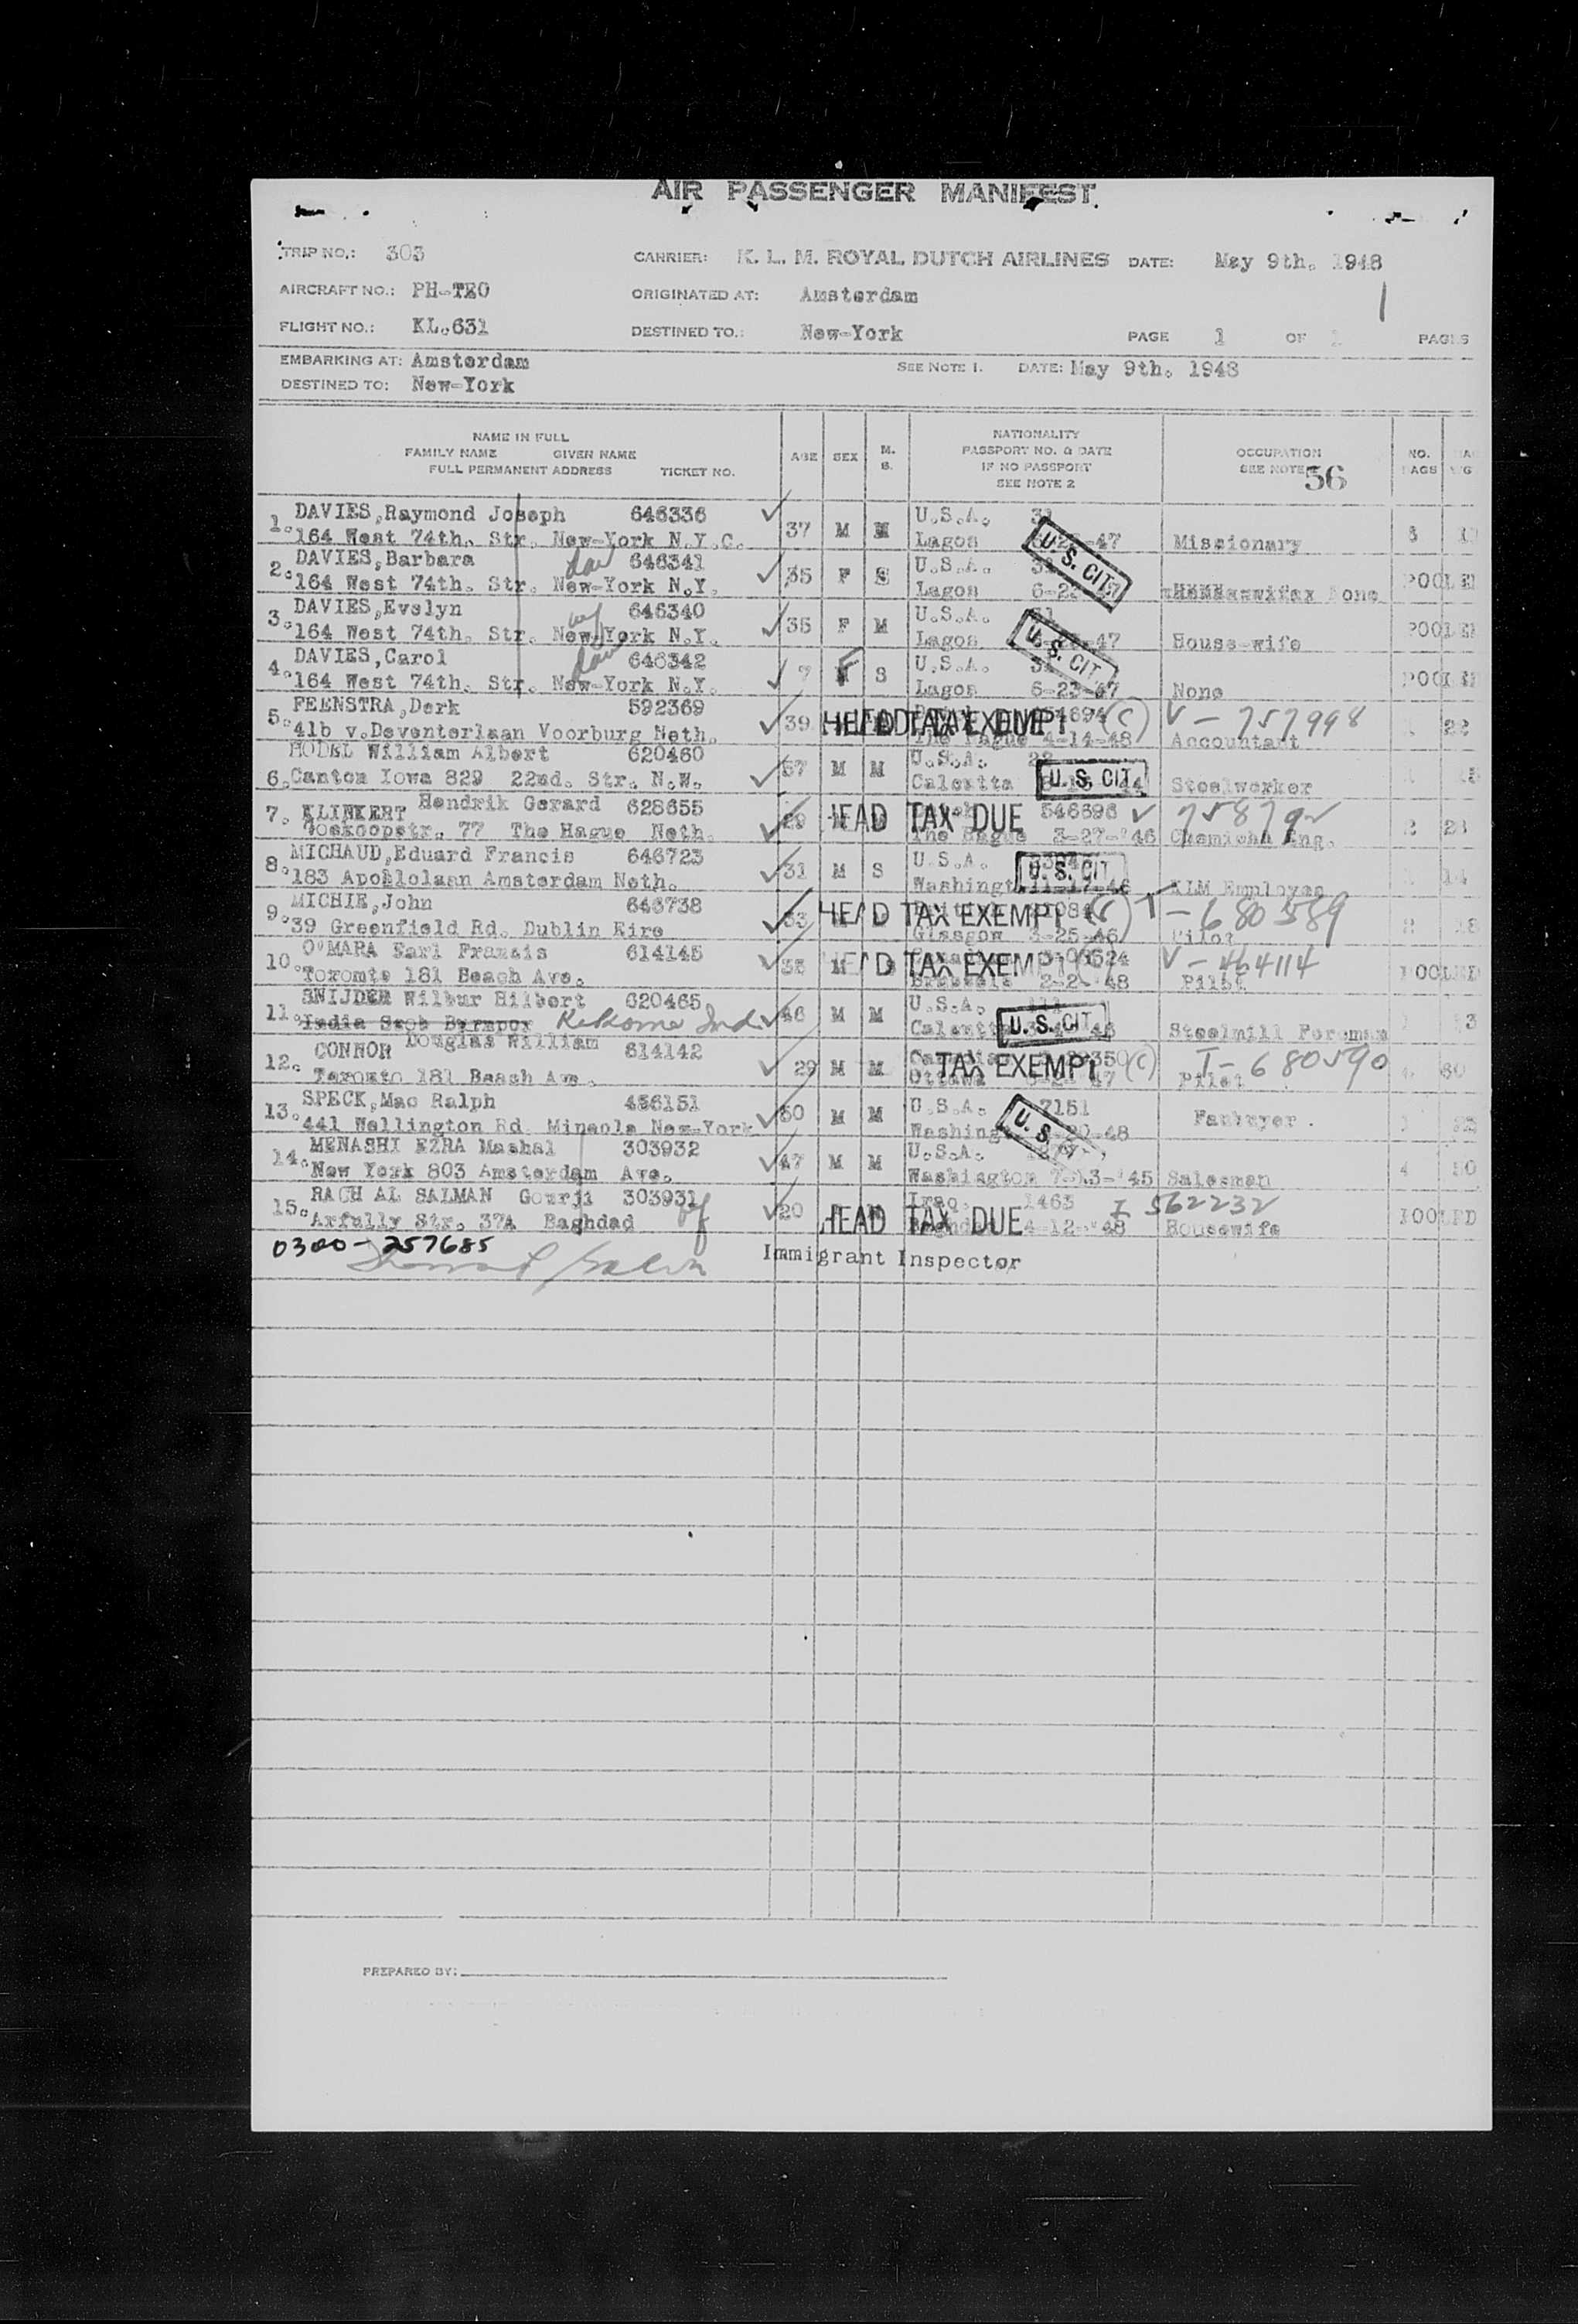 AIR PASSENGER MANIFEST.
TRIP NO.: 303 CARRIER: K. L. M. ROYAL DUTCH AIRLINES DATE: May 9th. 1948
AIRCRAFT NO.: PH-TEO ORIGINATED AT: Amsterdam
FLIGHT NO.: KL.631 DESTINED TO.: New-York PAGE 1 OF 1 PAGES
EMBARKING AT: Amsterdam SEE NOTE 1. DATE: May 9th. 1948
DESTINED TO: New-York
NAME IN FULL
FAMILY NAME GIVEN NAME
FULL PERMANENT ADDRESS TICKET NO.
AGE SEX M. S.
NATIONALITY
PASSPORT NO. & DATE
IF NO PASSPORT
SEE NOTE 2
OCCUPATION
SEE NOTE
56
NO.
BAGS
1. DAVIES,Raymond Joseph 646336 37 M M U.S.A.
164 West 74th. Str. New-York N.Y.C. Lagos 47 Missionary
U. S. CIT.
2. DAVIES,Barbara daw 646341 35 F S U.S.A.
164 West 74th. Str. New-York N.Y. Lagos None POOLED
3. DAVIES,Evelyn wf 646340 35 F M U.S.A.
164 West 74th. Str. New-York N.Y. Lagos 47 House-wife POOLED
U. S. CIT
4. DAVIES,Carol daw 646342 7 F S U.S.A.
164 West 74th. Str. New-York N.Y. Lagos 6-23-47 None POOLED
5. FEENSTRA,Derk 592369 39 HEAD TAX EXEMPT (C) V - 757998
41b v.Deventerlaan Voorburg Neth. The Hague 4-14-48 Accountant 22
6. MODEL William Albert 620460 57 M M U.S.A.
Canton Iowa 829 22nd. Str. N.W. Calcutta U. S. CIT. Steelworker
7. KLINKERT Hendrik Gerard 628655 29 HEAD TAX DUE 546696
77 The Hague Neth. The Hague 3-27-'46 Eng. 2 23
8. MICHAUD,Eduard Francis 646723 31 M S U.S.A.
183 Apollolaan Amsterdam Neth. U. S. CIT. 11-17-46 KLM Employee 14
9. MICHIE,John 646738 33 HEAD TAX EXEMPT (C) T - 680589
39 Greenfield Rd. Dublin Eire Glasgow 25-46 Pilot
10. O'MARA Earl Francis 614145 HEAD TAX EXEMPT (C) V - 464114
Toromto 181 Beach Ave. 2-2- 48 Pilot POOLED
11. SNIJDER Wilbur Hilbert 620465 46 M M U.S.A.
Kokomo Ind Calcutta U. S. CIT. Steelmill Foreman
12. CONNOR Douglas William 614142 29 M M TAX EXEMPT (C) T - 680590
Toromto 181 Beach Ave. Ottawa 47 Pilot
13. SPECK,Mac Ralph 456151 50 M M U.S.A. 7151
441 Wellington Rd. Mineola New-York 48
U. S.
14. MENASHI EZRA Mashal 303932 47 M M U.S.A.
New York 803 Amsterdam Ave. Washington '45 Salesman 4 50
15. RACH AL SALMAN Gourji 303931 wf 20 HEAD TAX DUE Iraq. 1463 I 562232
Arfully Str. 37A Baghdad 4-12-'48 Housewife POOLED
0300-257685
Immigrant Inspector
PREPARED BY: